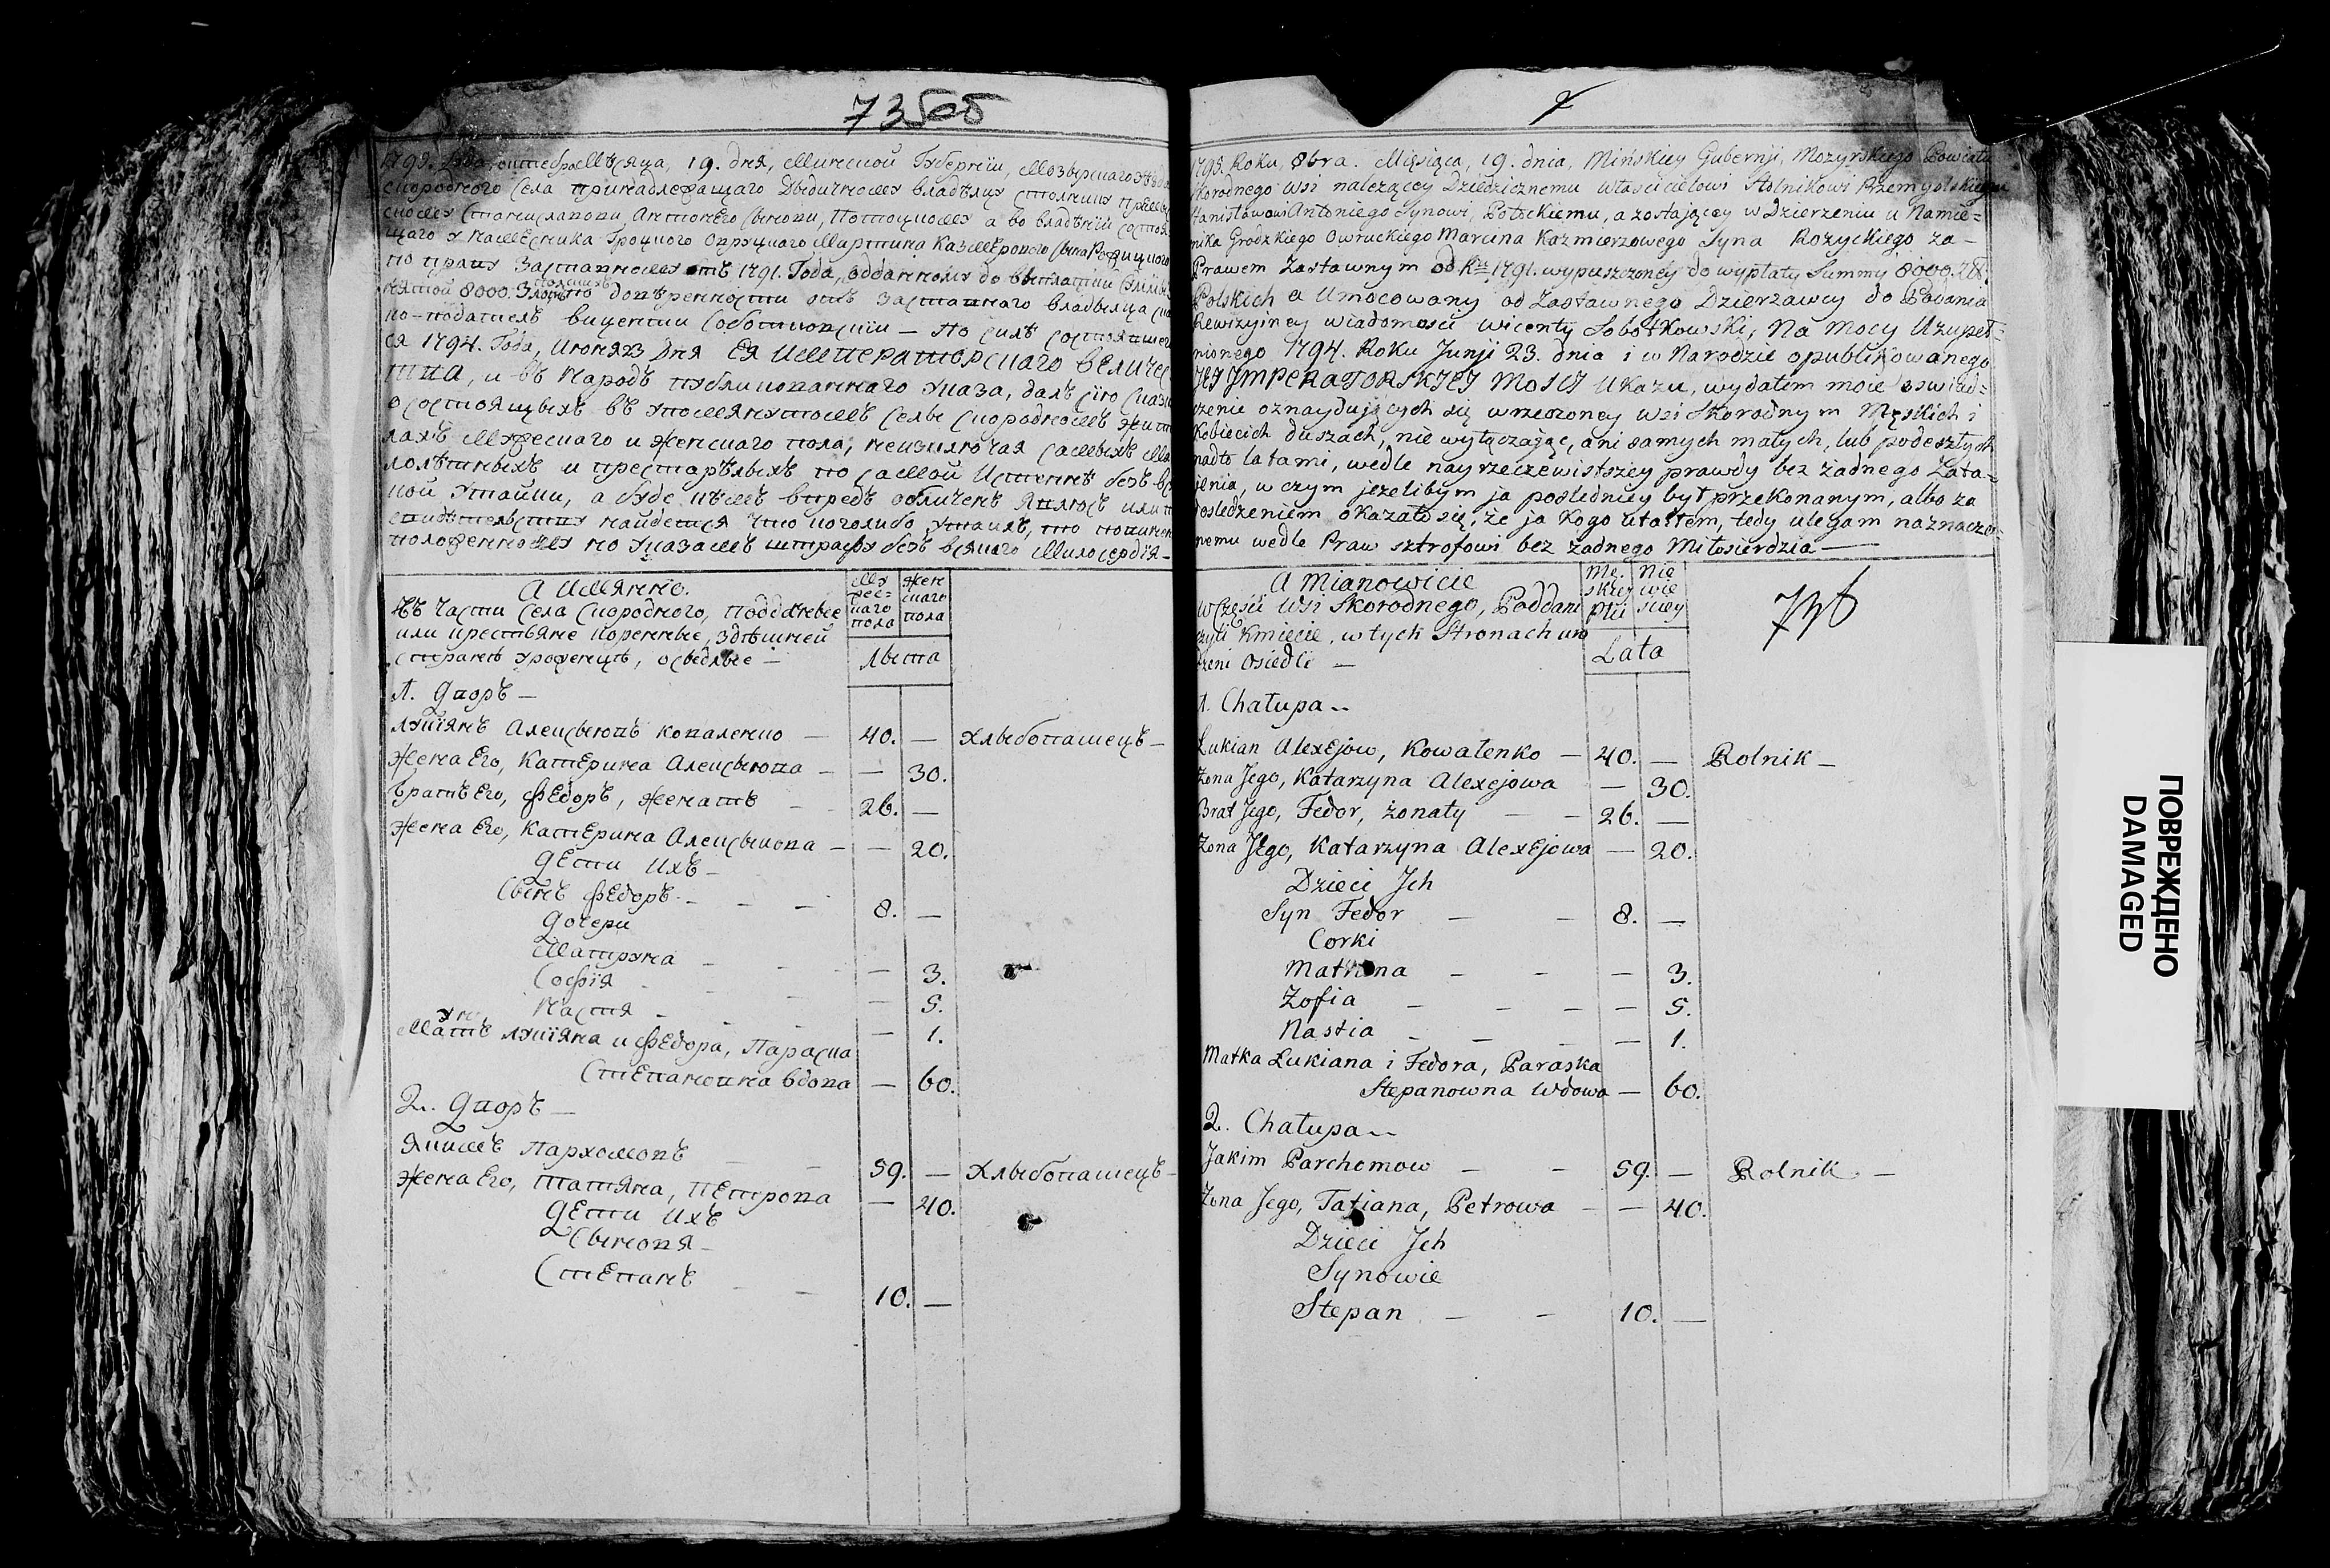 735об
1795. Года, октебра Мѣсяца, 19. дня, Минской Губернїи, Мозырскаго
скороднаго Села принадлежащаго Дѣдичному владѣлцу столнику
Станиславови, Антонего Сынови, Потоцкому а во владѣнїи
щаго у намѣсника Гроцкого Овруцкого Мартина Казмѣрового Сына
по праву Заставному отъ 1791. Года, отданному до выплатии
8000. Злотъ полскихъ по довѣренности отъ Заставного владѣлца
по-податель виценти Соботковскїи — по силѣ
ся 1794. Года, Июня 23 Дня ЕЯ ИМПЕРАТОРСКАГО ВЕЛИЧЕС
ТВА, и въ Народъ публикованнаго Указа, далъ сїю
о состоящыхъ въ упомянутомъ селѣ скородномъ
лахъ Мужескаго и Женскаго пола, неизключая самыхъ
лолѣтныхъ и престарѣлыхъ по самой Истиннѣ безъ
кой Утайки, а буде въ чемъ впредъ обличенъ Явлюсь или
свидѣтельству найдется что кого либо утаилъ, то
положенному по Указамъ штрафу безъ всякого Милосердїя —
А Имянно.
Въ части села Скородного, подданые
или крестьяне коренные, здѣшней
странѣ уроженцѣ, осѣдлые —
Мужескаго пола
Женскаго пола
Лѣта
1. Дворъ —
Лукїянъ Алексѣювъ Коваленко — 40. — Хлѣбопашецъ —
Жена Его, Катерина Алексѣюва — — 30.
Братъ Его, Федоръ, Женатъ — 26. —
Жена Его, Катерина Алексѣюва — — 20.
Дети Ихъ —
Сынъ Федоръ — — — 8. —
Дочери
Матруна — — — 3.
Софїя — — — 5.
Настя — — — 1.
Матъ Лукїяна и Федора, Параска
Степановна вдова — 60.
2. Дворъ —
Якимъ Пархомовъ — — 59. — Хлѣбопашецъ —
Жена Его, Татяна, Петрова — 40.
Дети Ихъ
Сыновя —
Степанъ — — 10. —
1795. Roku, 8bra. Miesiąca, 19. dnia, Mińskiey Gubernji, Mozyrskiego Powiatu
Skorodnego Wsi należącey Dziedzicznemu Właścicielowi Stolnikowi Przemyslskiemu
Stanisławowi Antoniego Synowi, Potockiemu, a zostającey w Dzierżeniu u Namie=
nika Grodzkiego Owruckiego Marcina Kazmierzowego Syna Rożyckiego za-
Prawem Zastawnym od Rku 1791. wypuszczoney do wypłaty Summy 8000. Zł:
Polskich a Umocowany od Zastawnego Dzierżawcy do Podania
Rewizyiney wiadomości Wicenty Sobotkowski, Na mocy Uzupeł=
nionego 1794. Roku Junji 23. dnia i w Narodzie opublikowanego
JEJ JMPERATORSKJEJ MOSCI Ukazu, wydałem moie oswiad=
czenie oznaydujących się w rzeczoney Wsi Skorodnym Męskich i
Kobiecich duszach, nie wyłączając, ani samych małych, lub podeszłych
nadto latami, wedle nayrzeczewistszey prawdy bez żadnego Zata=
jenia, w czym jeżelibym ja poslednicy był przekonanym, albo za
posledzeniem okazało się, że ja kogo utaiłem, tedy ulegam naznaczo=
nemu wedle Praw sztrofowi bez żadnego Miłosierdzia —
A Mianowicie
W Części Wsi Skorodnego, Poddani
czyli Kmiecie, w tych Stronach uro
dzeni Osiedli —
Męskiey Płci
Niewieściey
Lata
736
1. Chałupa --
Lukian Alexejow, Kowalenko — 40. — Rolnik —
Zona Jego, Katarzyna Alexejowa — 30.
Brat Jego, Fedor, żonaty — — 26. —
Zona Jego, Katarzyna Alexejowa — 20.
Dzieci Jch
Syn Fedor — — 8. —
Corki
Matrona — — — 3.
Zofia — — — — 5.
Nastia — — — — 1.
Matka Lukiana i Fedora, Paraska
Stepanowna Wdowa — 60.
2. Chałupa --
Jakim Parchomow — — 59. — Rolnik —
Zona Jego, Tatiana, Petrowa — — 40.
Dzieci Jch
Synowie
Stepan — — 10. —
ПОВРЕЖДЕНО
DAMAGED